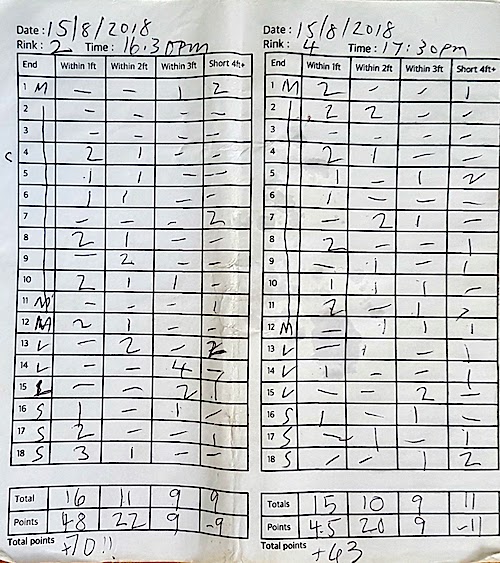 Date : 15/8/2018
Rink : 2 Time : 16:30pm
End Within 1ft Within 2ft Within 3ft Short 4ft+
1 M — — 1 2
2 - - - -
3 - - - -
4 2 1 - -
5 1 1 - -
6 1 1 - -
7 - - - 2
8 2 1 - -
9 - 2 - -
10 2 1 1 -
11 M - - - 1
12 M 2 1 - -
13 L - 2 -
14 L - - 4 -
15 L - - 2 1
16 S 1 - 1 -
17 S 2 - - 1
18 S 3 1 - -
Total 16 11 9 9
Points 48 22 9 -9
Total points +70!!
Date : 15/8/2018
Rink : 4 Time : 17:30pm
End Within 1ft Within 2ft Within 3ft Short 4ft+
1 M 2 - - 1
2 2 2 - -
3 - - - -
4 2 1 - -
5 1 - 1 2
6 1 - - -
7 - 2 1 -
8 2 - - 1
9 - 1 - 1
10 1 1 1 1
11 2 - 1
12 M - 1 1 1
13 L - 1 - 1
14 L 1 - - 1
15 L - - 2 -
16 S 1 - 1 -
17 S - 1 - 1
18 S - - 1 2
Totals 15 10 9 11
Points 45 20 9 -11
Total points +63